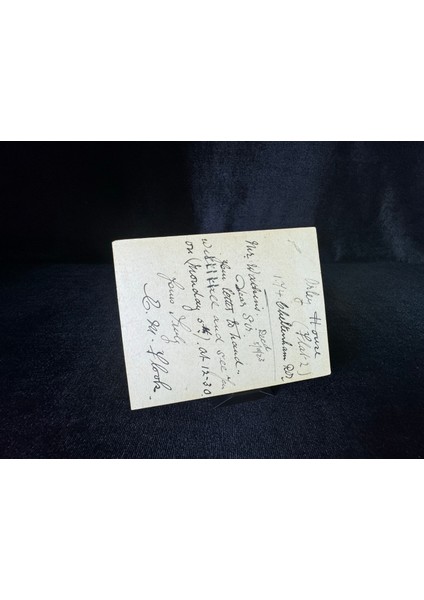 House
(Flat 2)
174 Cheltenham Rd.
Mr. Watkins
Dear Sir
Your letter to hand -
will call and see you
on (Monday 5th) at 12-30
Yours truly
E. M. Flook.